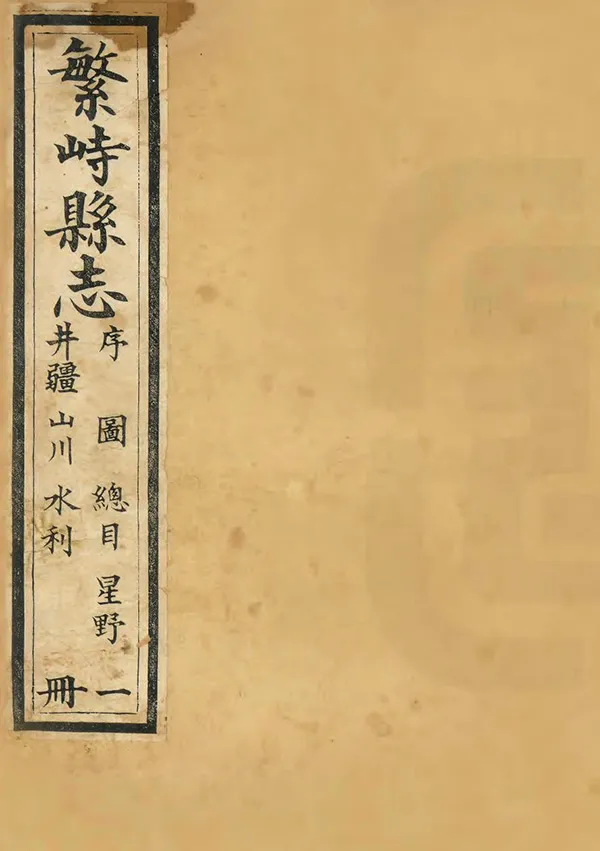 繁峙縣志
序 圖 總目 星野
井疆 山川 水利
一冊